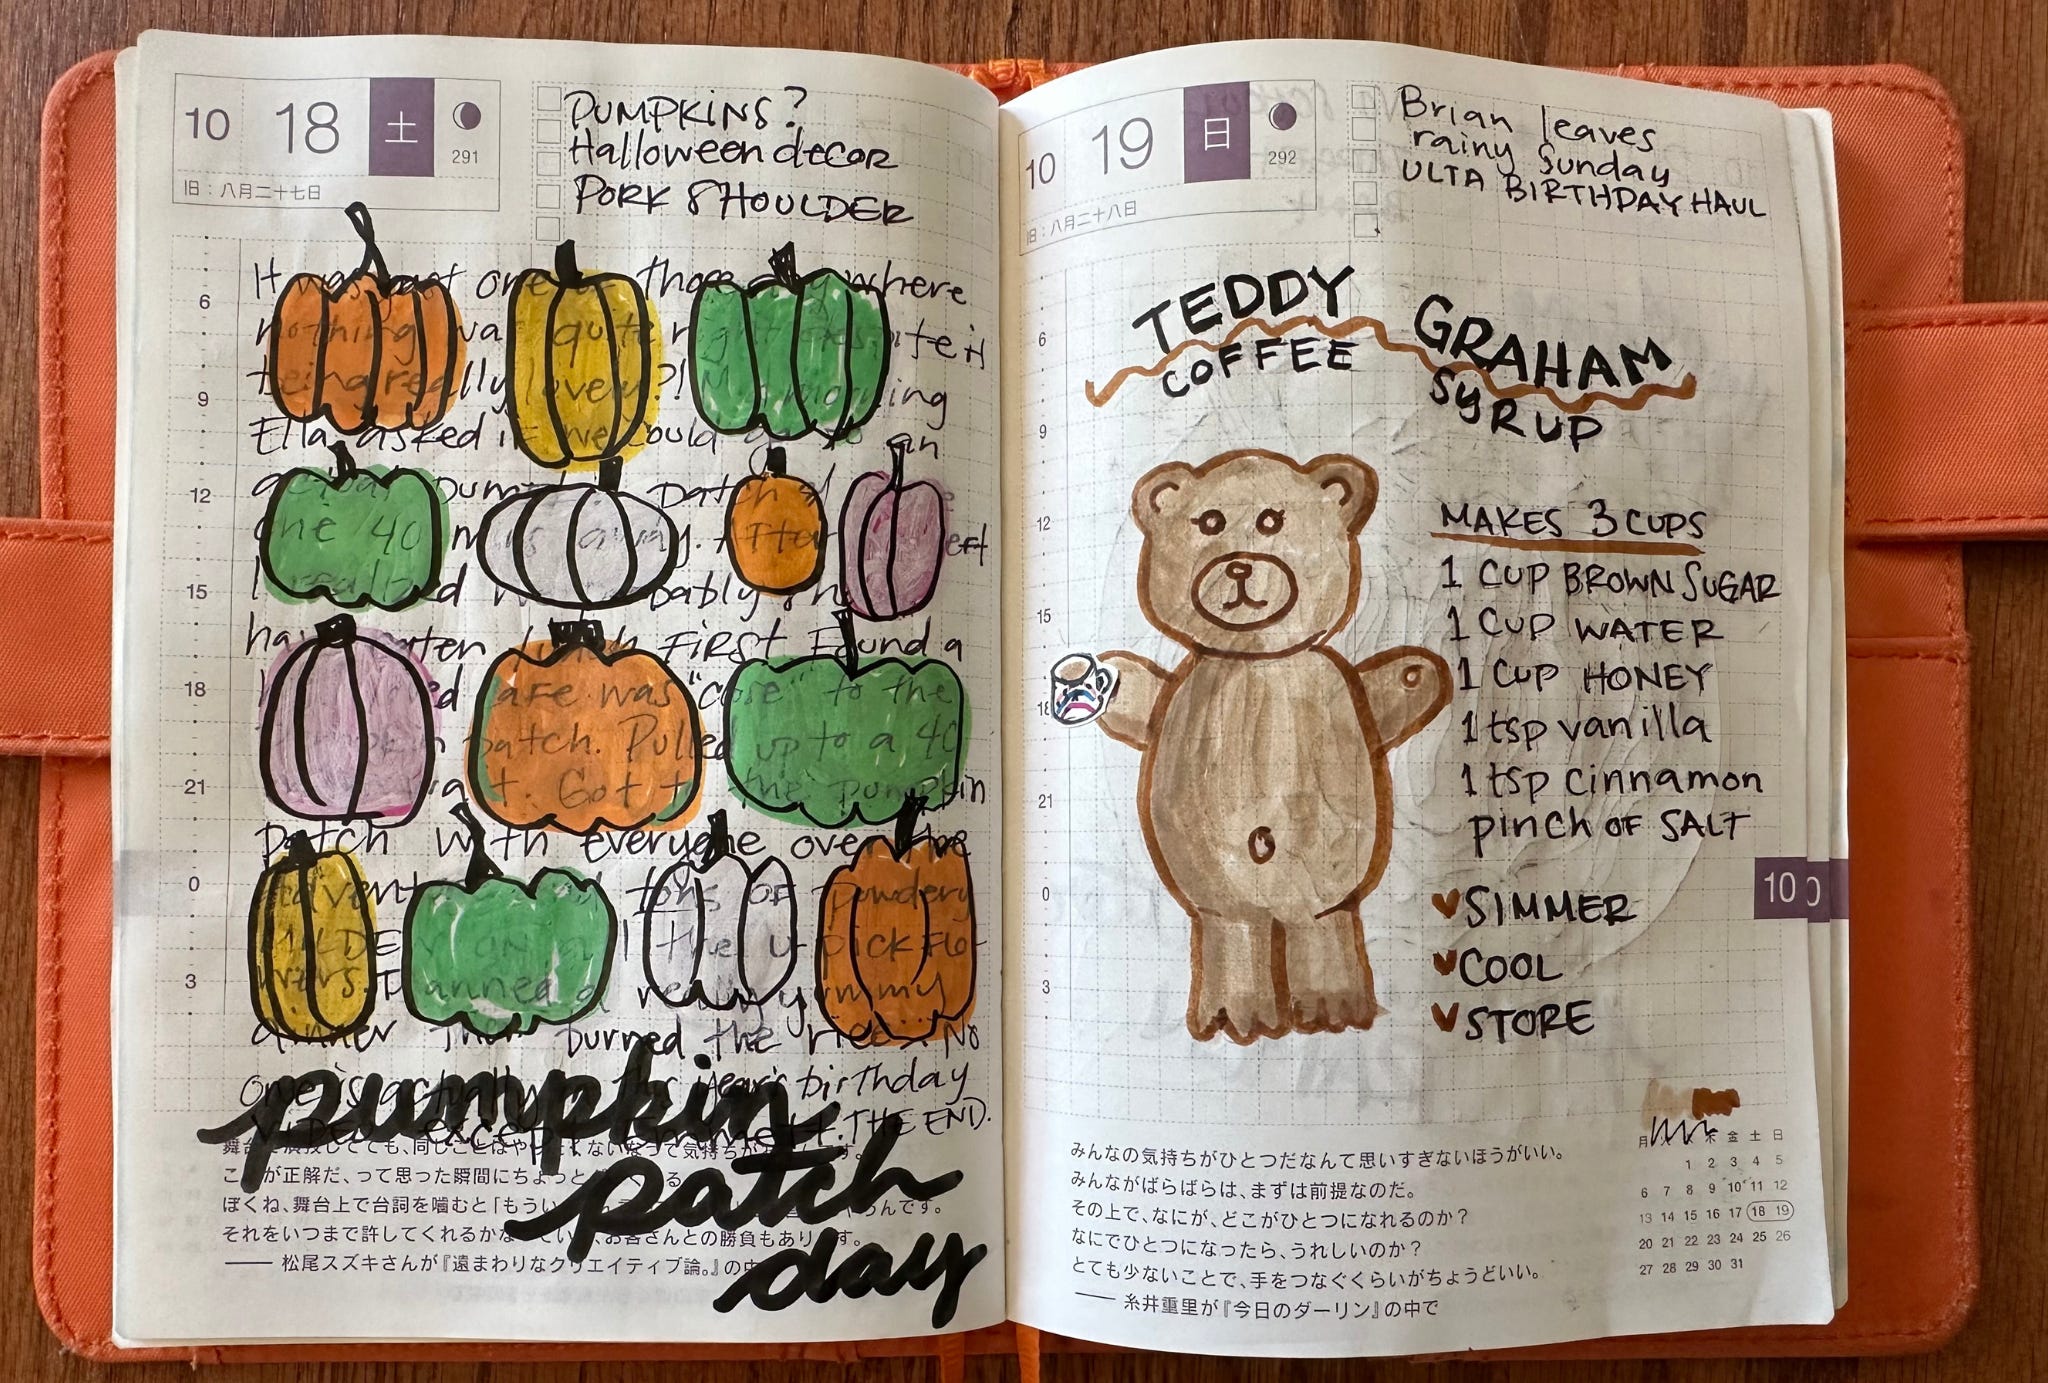 10 18 土
291
旧:八月二十七日
PUMPKINS?
Halloween decor
PORK SHOULDER
6
9
12
15
18
21
0
3
It was just one of those days where
nothing was quite right despite it
being really lovely?! morning
Ella asked if we could go to an
actual pumpkin patch
one 40 mins away. After
I realized we probably should
have eaten lunch first. Found a
cafe was "close" to the
pumpkin patch. Pulled up to a 40
wait. Got to the pumpkin
patch with everyone over the
tons of powdery
and all the u-pick flo-
wers. Planned a really yummy
dinner then burned the rice... No
one is actually in this year's birthday
video except Emmett. THE END.
pumpkin
patch
day
舞台で演技してても、同じことはやりたくないなって気持ちがあります。
が正解だ、って思った瞬間にちょっと
ぼくね、舞台上で台詞を噛むと「もうい
それをいつまで許してくれるかな お客さんとの勝負もあります。
── 松尾スズキさんが『遠まわりなクリエイティブ論。』の中
10 19 日
292
旧:八月二十八日
Brian leaves
rainy Sunday
ULTA BIRTHDAY HAUL
TEDDY GRAHAM
COFFEE SYRUP
6
9
12
15
18
21
0
3
MAKES 3 CUPS
1 CUP BROWN SUGAR
1 CUP WATER
1 CUP HONEY
1 tsp vanilla
1 tsp cinnamon
pinch OF SALT
SIMMER
COOL
STORE
10
みんなの気持ちがひとつだなんて思いすぎないほうがいい。
みんながばらばらは、まずは前提なのだ。
その上で、なにが、どこがひとつになれるのか?
なにでひとつになったら、うれしいのか?
とても少ないことで、手をつなぐくらいがちょうどいい。
── 糸井重里が『今日のダーリン』の中で
月 木 金 土 日
1 2 3 4 5
6 7 8 9 10 11 12
13 14 15 16 17 18 19
20 21 22 23 24 25 26
27 28 29 30 31